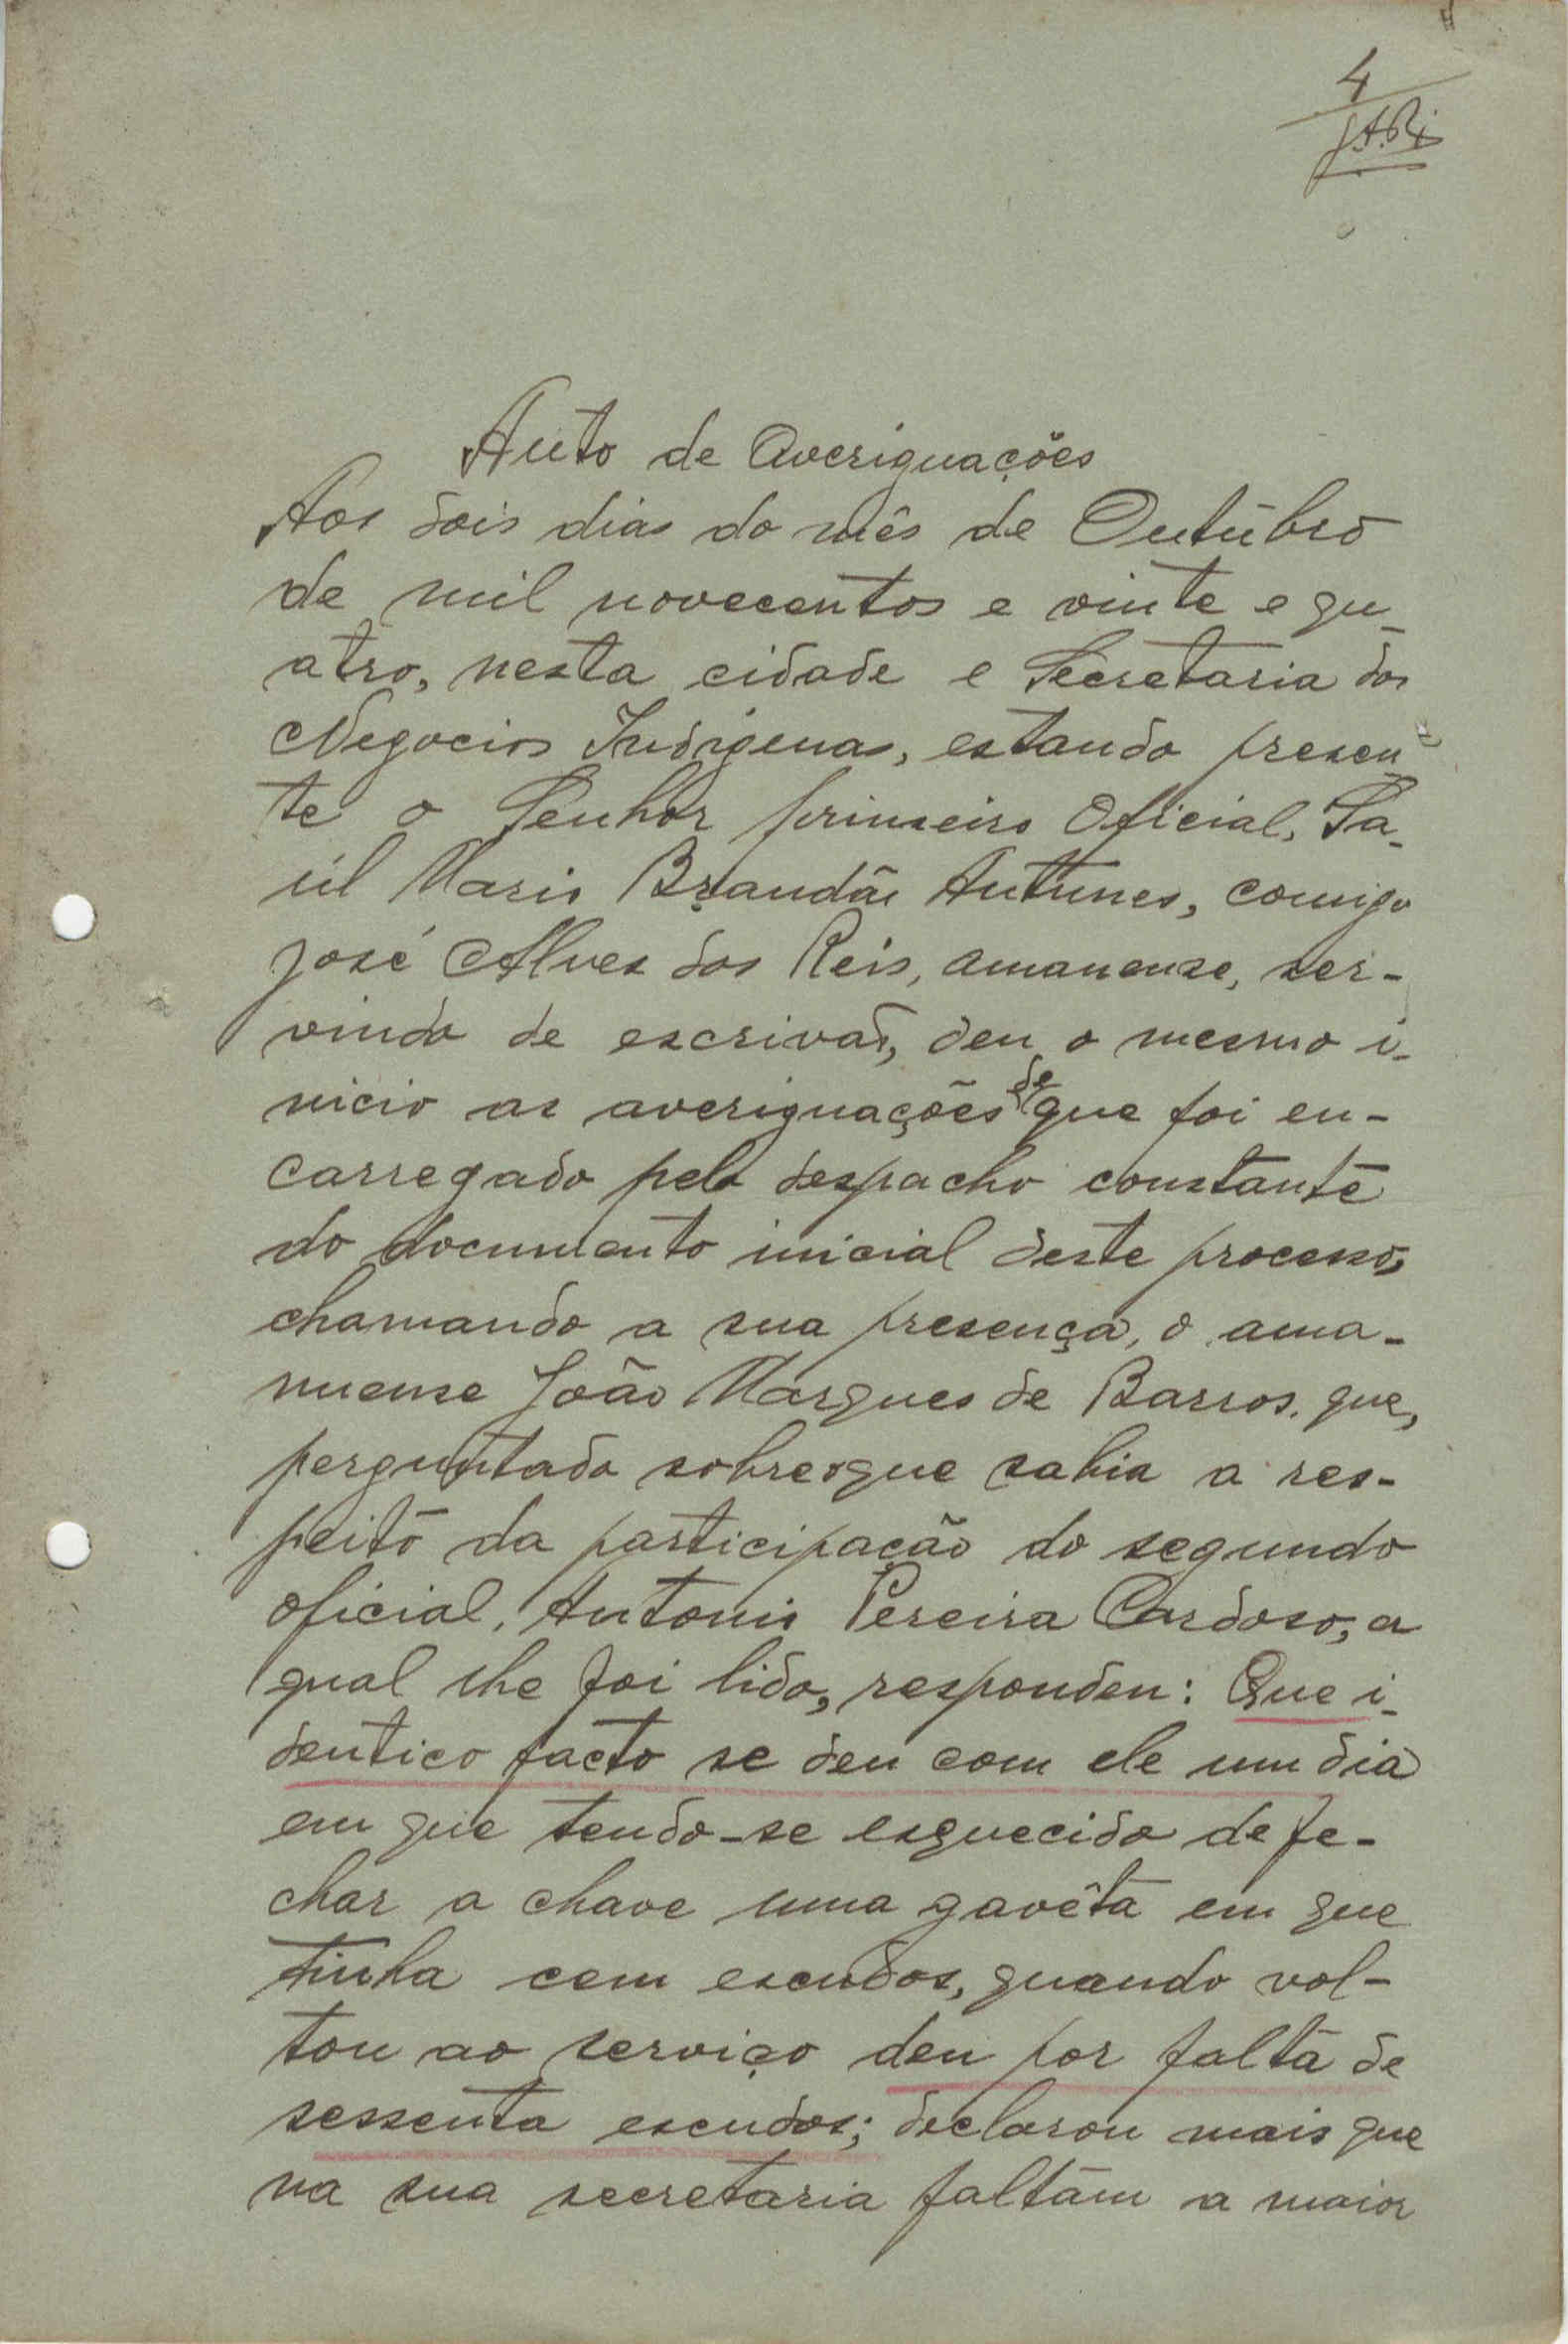 4
JAR
Auto de Averiguações
Aos dois dias do mês de Outúbro
de mil novecentos e vinte e qu-
atro, nesta cidade e Secretaria dos
Negocios Indigenas, estando presen-
te o Senhor primeiro Oficial, Sa-
úl Mario Brandão Antunes, comigo
José Alves dos Reis, amanuense, ser-
vindo de escrivão, deu o mesmo i-
nicio as averiguações de que foi en-
carregado pelo despacho constante
do documento inicial deste processo,
chamando a sua presença, o ama-
nuense João Marques de Barros, que,
perguntado sobre o que sabia a res-
peito da participação do segundo
oficial, Antonio Pereira Cardoso, a
qual lhe foi lida, respondeu: Que i-
dentico facto se deu com ele um dia
em que tendo-se esquecido de fe-
char a chave uma gavêta em que
tinha cem escudos, quando vol-
tou ao serviço deu por falta de
sessenta escudos; declarou mais que
na sua secretaria faltam a maior